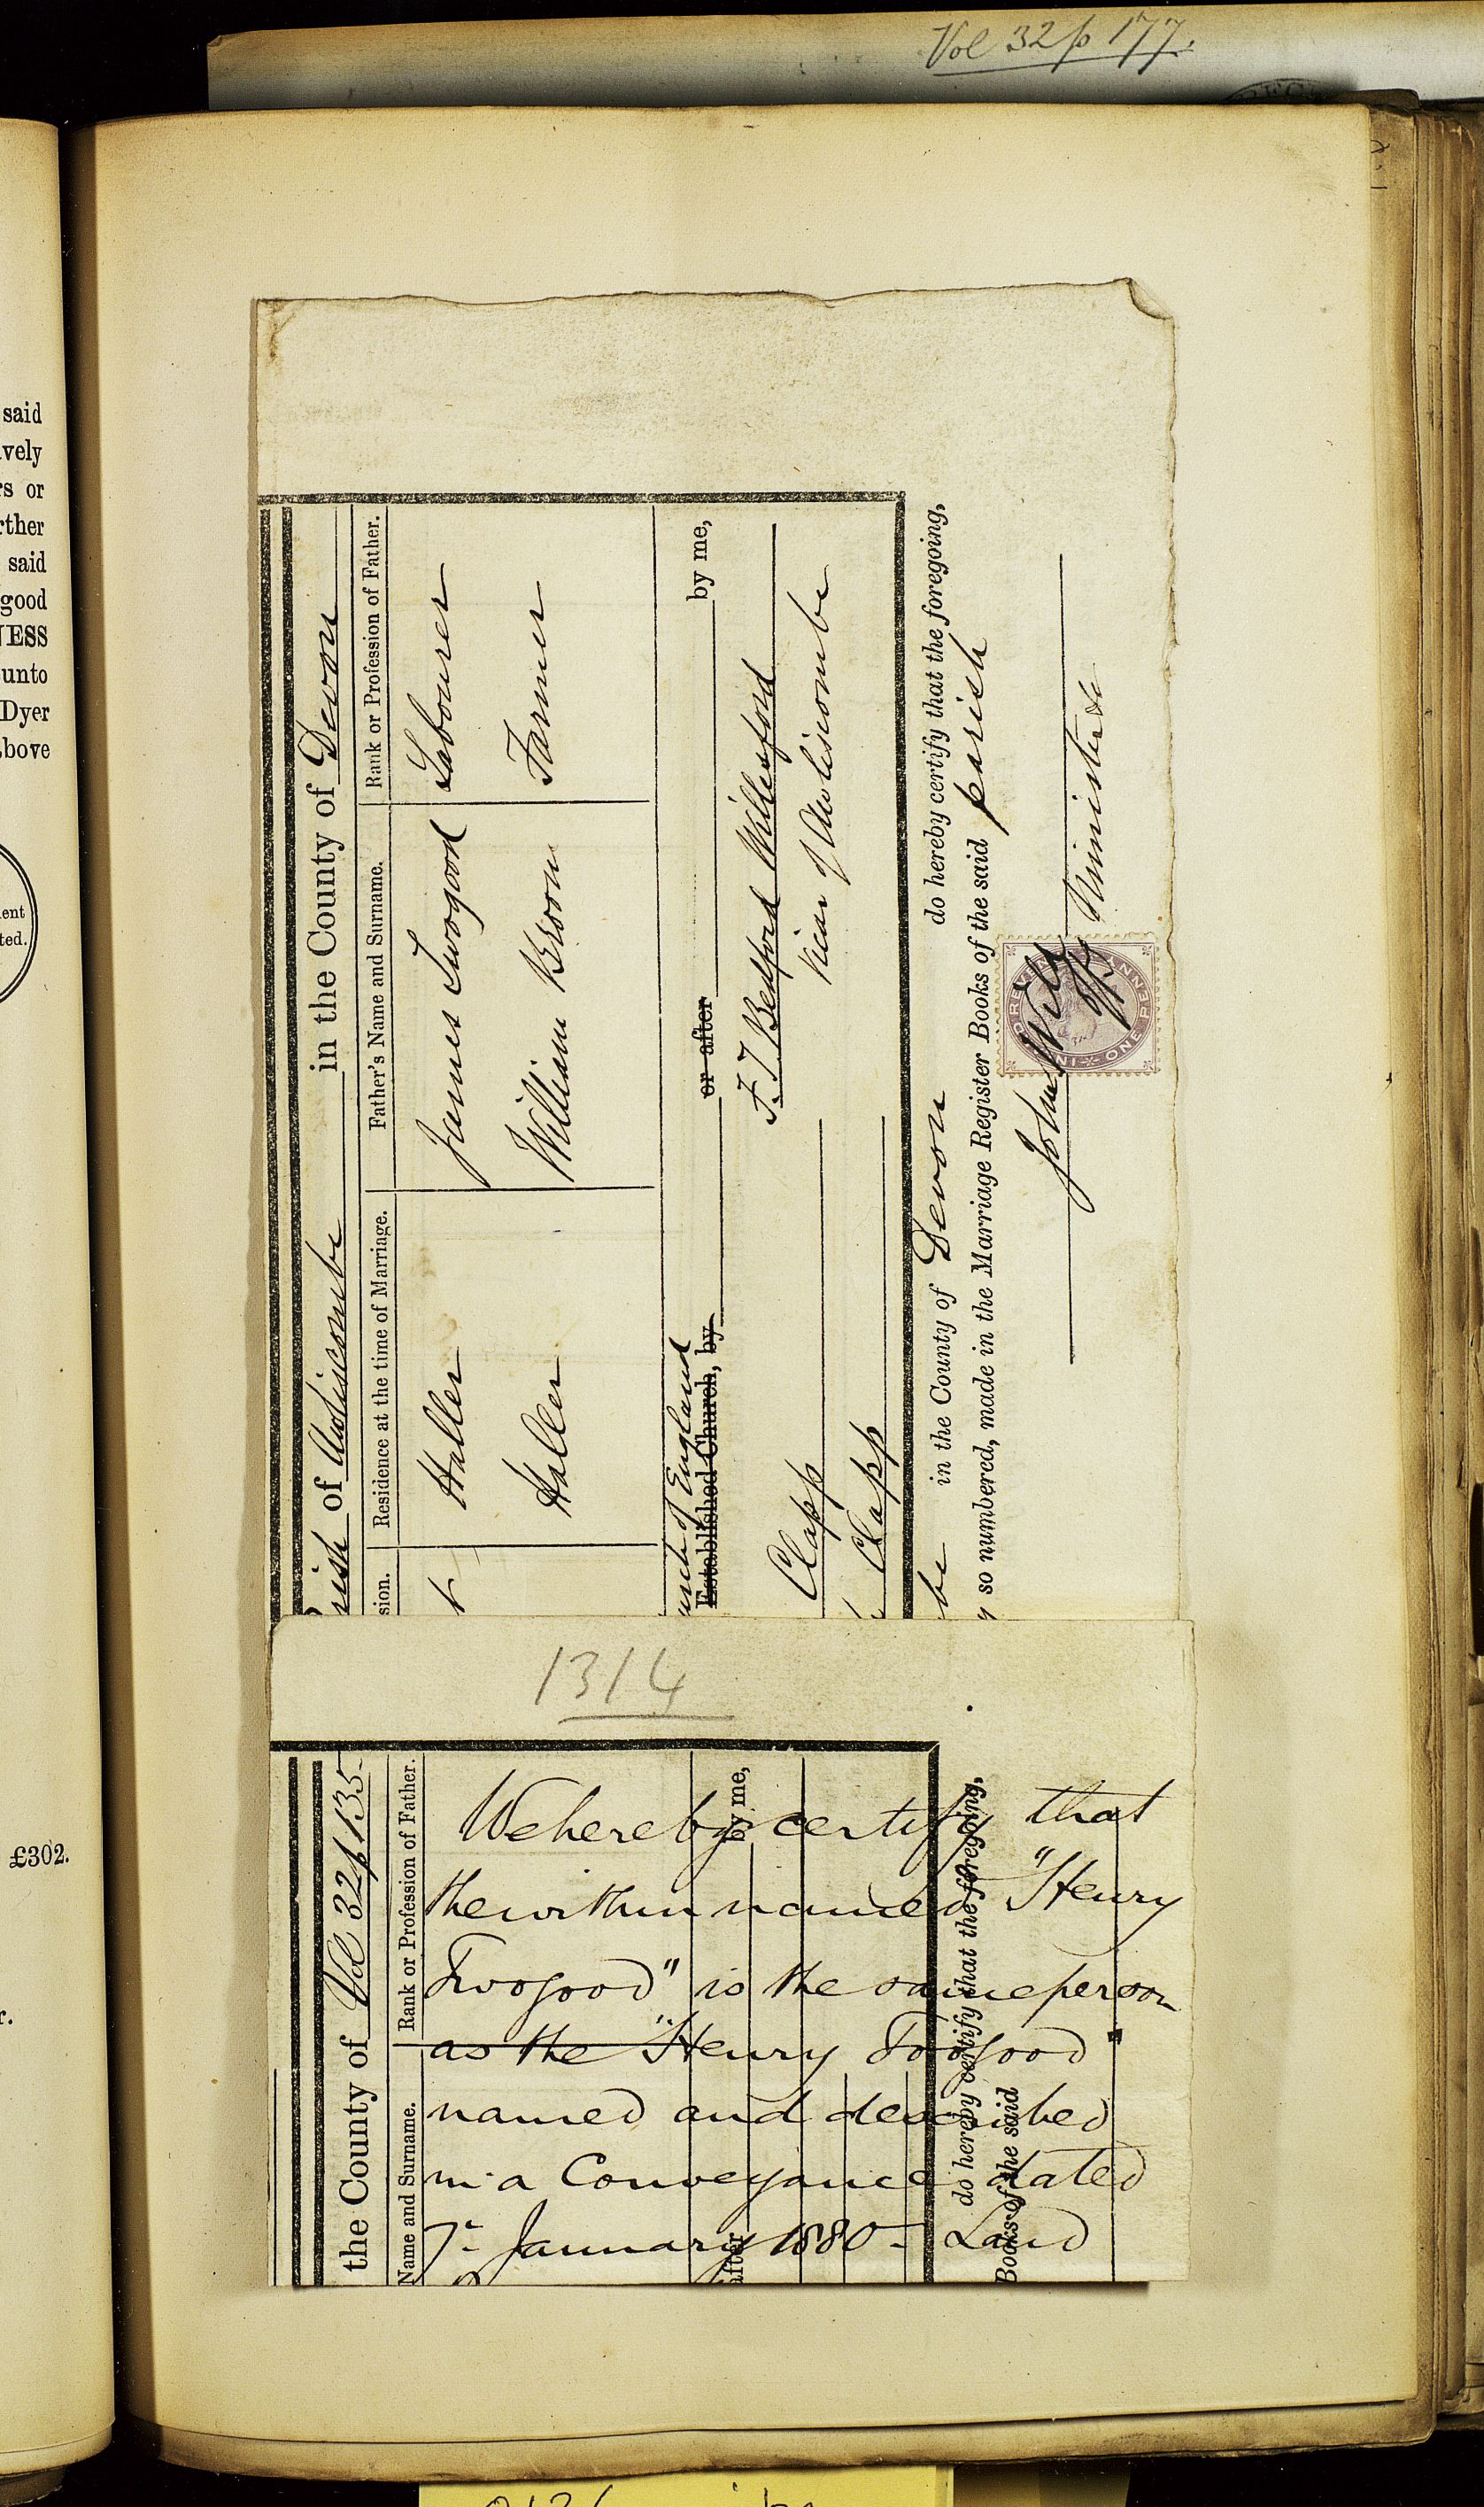 Vol 32 p 177.
said
vely
rs or
rther
said
good
NESS
unto
Dyer
bove
ent
ted.
£302.
r.
rish of Awliscombe in the County of Devon
sion. Residence at the time of Marriage. Father's Name and Surname. Rank or Profession of Father.
r Halles James Twogood Labourer
Halles William Broom Farmer
urch of England
Established Church, by or after by me,
Clapp F. J. Bedford Willesford
Clapp Vicar of Awliscombe
be in the County of Devon do hereby certify that the foregoing,
y so numbered, made in the Marriage Register Books of the said parish
John Minister
INLAND REVENUE ONE PENNY
1314
the County of Vol 32 p 135
Name and Surname. Rank or Profession of Father.
after by me,
do hereby certify that the foregoing,
Books of the said
We hereby certify that
the within named "Henry
Twogood" is the same person
as the "Henry Toogood"
named and described
in a Conveyance dated
7th January 1880 - Land